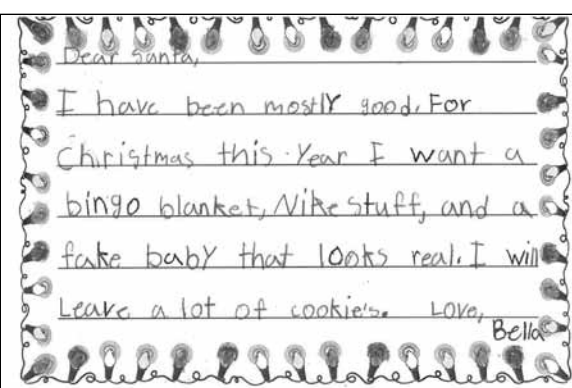 Dear Santa,
I have been mostly good. For
Christmas this Year I want a
bingo blanket, Nike stuff, and a
fake baby that looks real. I will
Leave a lot of cookie's. Love,
Bella